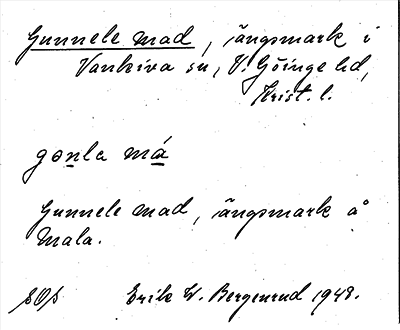 Gunnele mad, ängsmark i
Vankiva sn, V. Göinge hd,
Krist. l.
gonla má
Gunnele mad, ängsmark å
Mala.
Erik W. Bergenrud 1948.